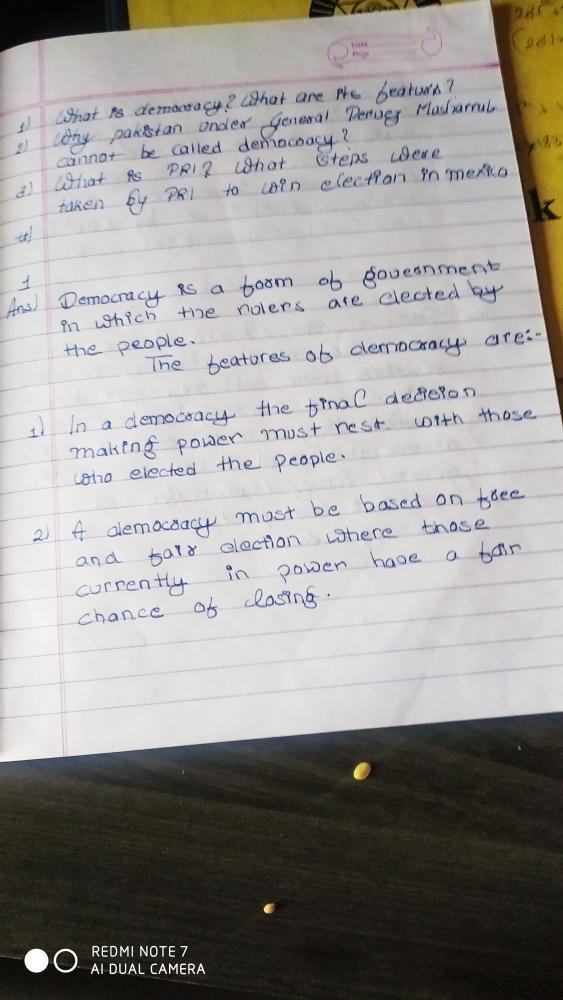 Date
Page
1) What is democracy? What are its feature?
2) Why pakistan under General Pervez Musharruf
cannot be called democracy?
3) What is PRI? What steps were
taken by PRI to win election in mexico
4)
1
Ans) Democracy is a form of government
in which the rulers are elected by
the people.
The features of democracy are:-
1) In a democracy the final decision
making power must rest with those
who elected the people.
2) A democracy must be based on free
and fair election where those
currently in power have a fair
chance of closing.
k
REDMI NOTE 7
AI DUAL CAMERA